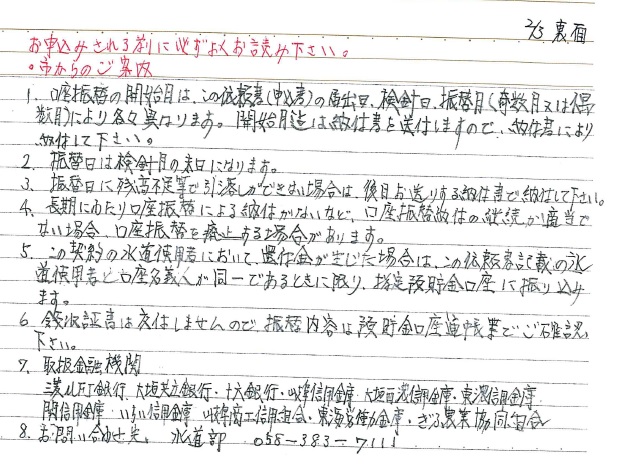 2/3 裏面
お申込みされる前に必ずよくお読み下さい。
・市からのご案内
1. 口座振替の開始月は、この依頼書(申込書)の届出日、検針日、振替月(奇数月又は偶
数月)により各々異なります。開始月迄は納付書を送付しますので、納付書により
納付して下さい。
2. 振替日は検針月の末日になります。
3. 振替日に残高不足等で引落しができない場合は、後日お送りする納付書で納付して下さい。
4. 長期にわたり口座振替による納付がないなど、口座振替納付の継続が適当で
ない場合、口座振替を廃止する場合があります。
5. この契約の水道使用者において、還付金が生じた場合は、この依頼書記載の水
道使用者と口座名義人が同一であるときに限り、指定預貯金口座に振り込み
ます。
6. 領収証書は交付しませんので、振替内容は預貯金口座通帳等でご確認
下さい。
7. 取扱金融機関
三菱UFJ銀行・大垣共立銀行・十六銀行・岐阜信用金庫・大垣西濃信用金庫・東濃信用金庫
関信用金庫・いちい信用金庫・岐阜商工信用組合・東海労働金庫・ぎふ農業協同組合
8. お問い合わせ先 水道部 058-383-7111